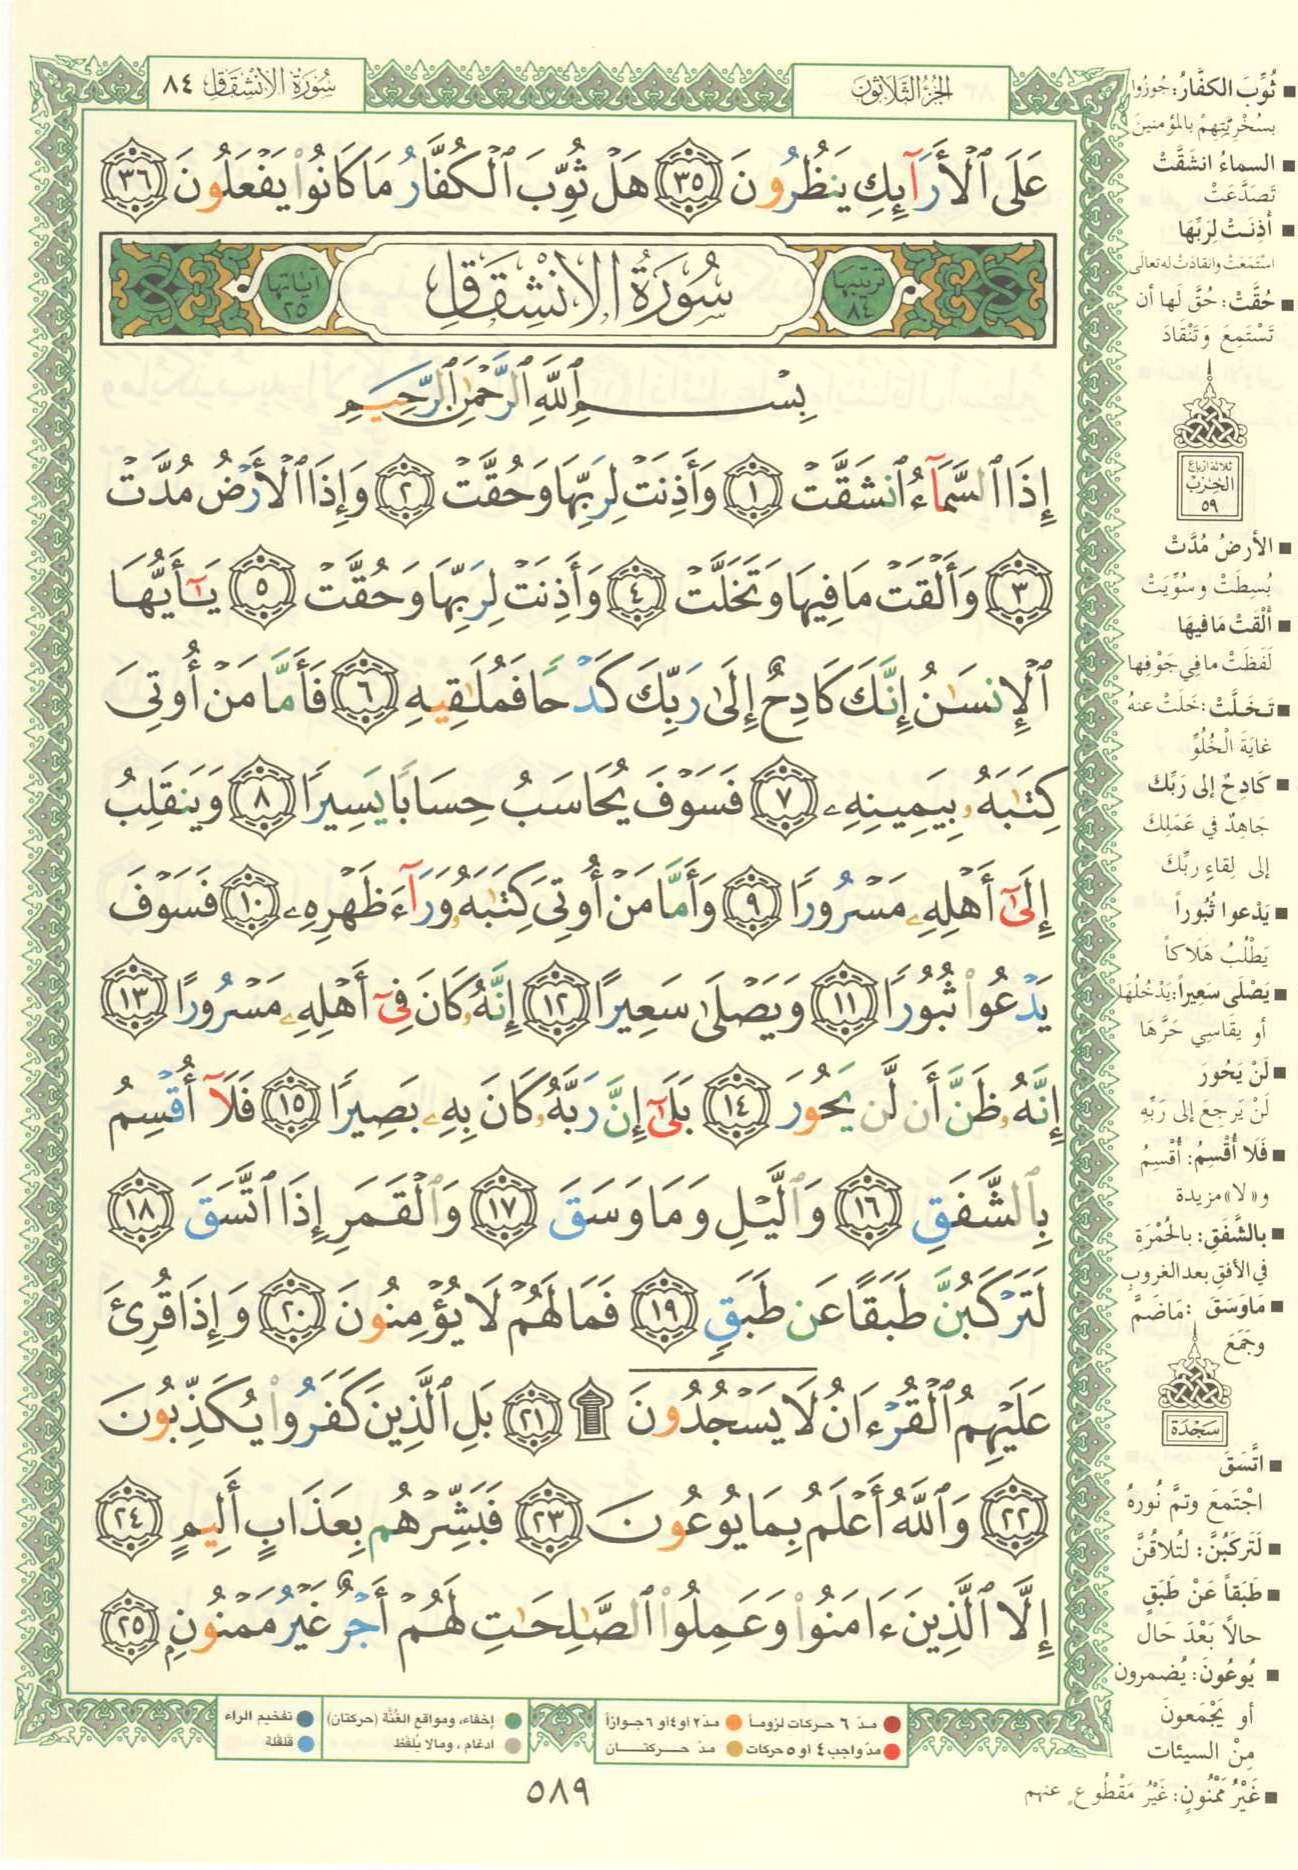 سُورَةُ الِانْشِقَاقِ ٨٤
الجُزْءُ الثَّلَاثُونَ
عَلَى ٱلْأَرَآئِكِ يَنظُرُونَ ٣٥ هَلْ ثُوِّبَ ٱلْكُفَّارُ مَا كَانُوا۟ يَفْعَلُونَ ٣٦
ترتيبها ٨٤
سُورَةُ الِانْشِقَاقِ
آياتها ٢٥
بِسْمِ ٱللَّهِ ٱلرَّحْمَٰنِ ٱلرَّحِيمِ
إِذَا ٱلسَّمَآءُ ٱنشَقَّتْ ١ وَأَذِنَتْ لِرَبِّهَا وَحُقَّتْ ٢ وَإِذَا ٱلْأَرْضُ مُدَّتْ
٣ وَأَلْقَتْ مَا فِيهَا وَتَخَلَّتْ ٤ وَأَذِنَتْ لِرَبِّهَا وَحُقَّتْ ٥ يَـٰٓأَيُّهَا
ٱلْإِنسَـٰنُ إِنَّكَ كَادِحٌ إِلَىٰ رَبِّكَ كَدْحًا فَمُلَـٰقِيهِ ٦ فَأَمَّا مَنْ أُوتِىَ
كِتَـٰبَهُۥ بِيَمِينِهِۦ ٧ فَسَوْفَ يُحَاسَبُ حِسَابًا يَسِيرًا ٨ وَيَنقَلِبُ
إِلَىٰٓ أَهْلِهِۦ مَسْرُورًا ٩ وَأَمَّا مَنْ أُوتِىَ كِتَـٰبَهُۥ وَرَآءَ ظَهْرِهِۦ ١٠ فَسَوْفَ
يَدْعُوا۟ ثُبُورًا ١١ وَيَصْلَىٰ سَعِيرًا ١٢ إِنَّهُۥ كَانَ فِىٓ أَهْلِهِۦ مَسْرُورًا ١٣
إِنَّهُۥ ظَنَّ أَن لَّن يَحُورَ ١٤ بَلَىٰٓ إِنَّ رَبَّهُۥ كَانَ بِهِۦ بَصِيرًا ١٥ فَلَآ أُقْسِمُ
بِٱلشَّفَقِ ١٦ وَٱلَّيْلِ وَمَا وَسَقَ ١٧ وَٱلْقَمَرِ إِذَا ٱتَّسَقَ ١٨
لَتَرْكَبُنَّ طَبَقًا عَن طَبَقٍ ١٩ فَمَا لَهُمْ لَا يُؤْمِنُونَ ٢٠ وَإِذَا قُرِئَ
عَلَيْهِمُ ٱلْقُرْءَانُ لَا يَسْجُدُونَ ۩ ٢١ بَلِ ٱلَّذِينَ كَفَرُوا۟ يُكَذِّبُونَ
٢٢ وَٱللَّهُ أَعْلَمُ بِمَا يُوعُونَ ٢٣ فَبَشِّرْهُم بِعَذَابٍ أَلِيمٍ ٢٤
إِلَّا ٱلَّذِينَ ءَامَنُوا۟ وَعَمِلُوا۟ ٱلصَّـٰلِحَـٰتِ لَهُمْ أَجْرٌ غَيْرُ مَمْنُونٍۭ ٢٥
■ ثُوِّبَ الكفَّارُ: جُوزُوا
بسُخْرِيَّتِهِمْ بالمؤمنين
■ السماءُ انشَقَّتْ
تَصَدَّعَتْ
■ أذِنَتْ لِرَبِّهَا
اسْتَمَعَتْ وانقادَتْ له تعالى
■ حُقَّتْ: حُقَّ لَها أن
تَسْتَمِعَ وَتَنْقَادَ
ثلاثة أرباع
الحِزْبُ
٥٩
■ الأرضُ مُدَّتْ
بُسِطَتْ وسُوِّيَتْ
■ أَلْقَتْ مَا فيهَا
لَفَظَتْ ما فِي جَوْفِها
■ تَخَلَّتْ: خَلَتْ عنهُ
غايَةَ الْخُلُوِّ
■ كَادِحٌ إلى رَبِّكَ
جَاهِدٌ في عَمَلِكَ
إلى لِقاءِ ربِّكَ
■ يَدْعوا ثُبُوراً
يَطْلُبُ هَلَاكاً
■ يَصْلَى سَعِيراً: يَدْخُلُهَا
أو يقَاسِي حَرَّهَا
■ لَنْ يَحُورَ
لَنْ يَرجِعَ إلى رَبِّهِ
■ فَلَا أُقْسِمُ: أُقْسِمُ
و«لا» مزيدة
■ بالشَّفَقِ: بالحُمْرَةِ
في الأفقِ بعد الغروبِ
■ مَاوَسَقَ: مَاضَمَّ
وجَمَعَ
سَجْدَة
■ اتَّسَقَ
اجْتَمَعَ وتمَّ نُورهُ
■ لَتَركَبُنَّ: لَتُلاقُنَّ
■ طَبَقاً عَنْ طَبَقٍ
حالاً بَعْدَ حَال
■ يُوعُونَ: يُضمرون
أو يَجْمَعونَ
مِنْ السيئات
■ غَيْرُ مَمْنُونٍ: غَيْرُ مَقْطُوعٍ عنهم
مدّ ٦ حركات لزوماً
مدّ ٢ أو ٤ أو ٦ جوازاً
مدّ واجب ٤ أو ٥ حركات
مدّ حركتان
إخفاء، ومواقع الغُنَّة (حركتان)
ادغام، ومالا يُلفَظ
تفخيم الراء
قلقلة
٥٨٩